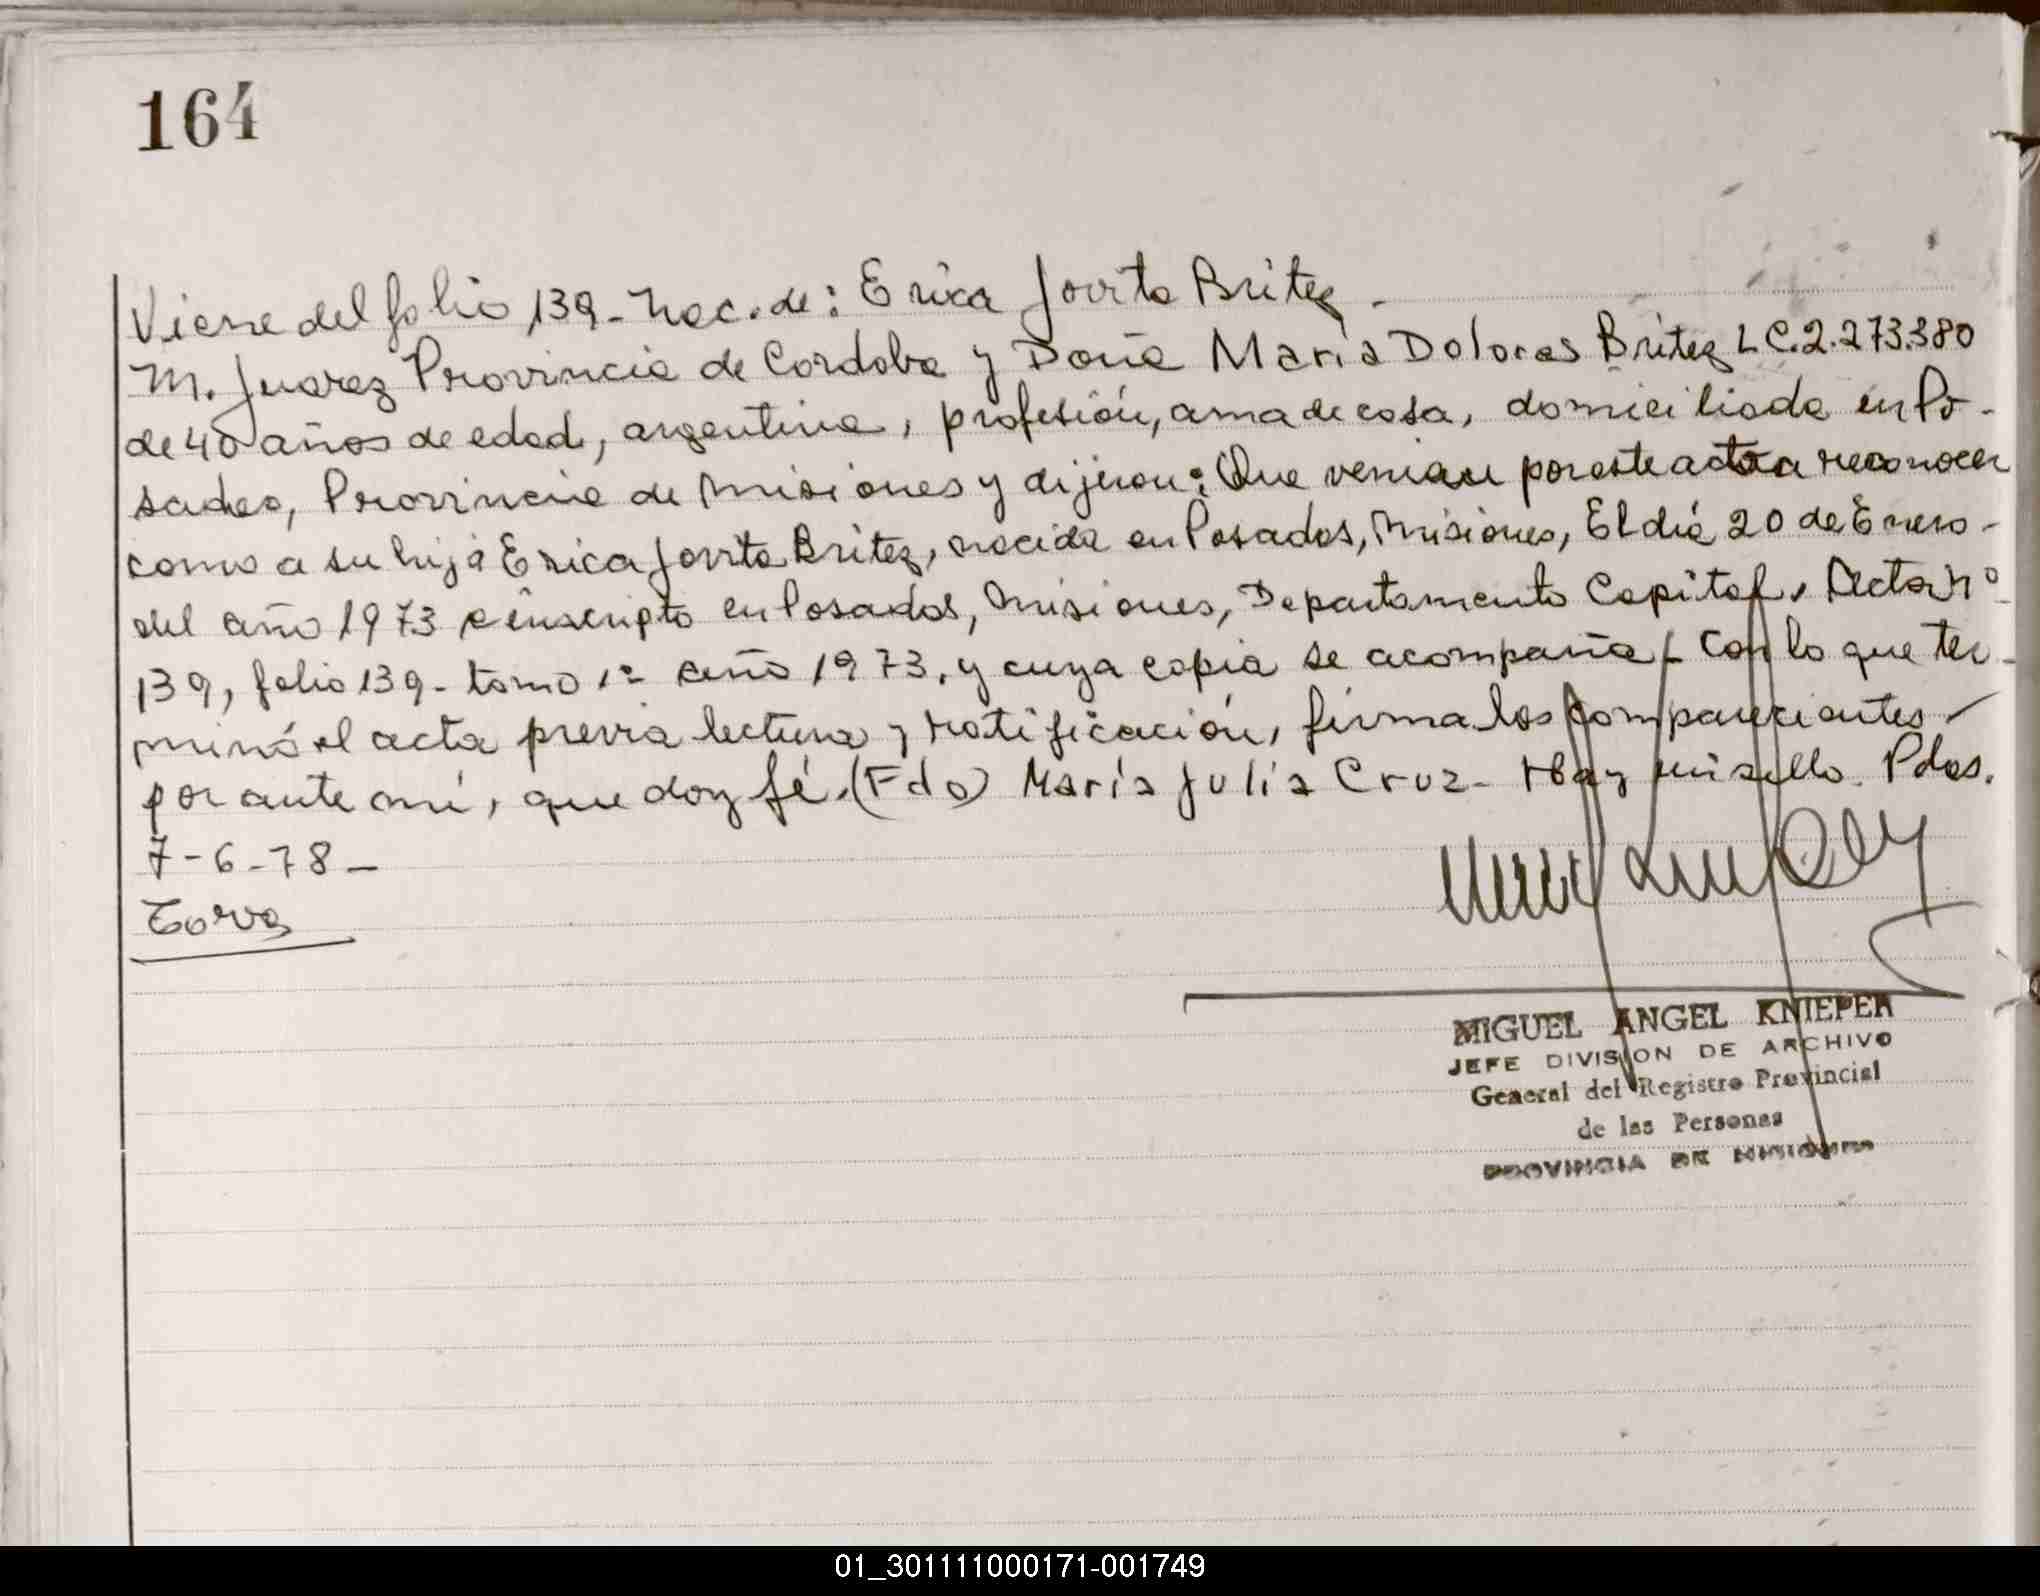 164
Viene del folio 139 - Nac. de: Erica Jovita Britez -
M. Juarez Provincia de Cordoba y Doña María Dolores Britez L C. 2.273.380
de 40 años de edad, argentina, profesión, ama de casa, domiciliada en Po-
sadas, Provincia de Misiones y dijeron: Que venian por este acto a reconocer
como a su hija Erica Jovita Britez, nacida en Posadas, Misiones, El día 20 de Enero -
del año 1973 e inscripto en Posadas, Misiones, Departamento Capital, Acta Nº
139, folio 139 - tomo 1º año 1973, y cuya copia se acompaña - Con lo que ter-
minó el acta previa lectura y ratificación, firma los comparecientes
por ante mí, que doy fé. (Fdo) María Julia Cruz - Hay un sello. Pdas.
7-6-78 -
MIGUEL ANGEL KNIEPER
JEFE DIVISION DE ARCHIVO
General del Registro Provincial
de las Personas
PROVINCIA DE MISIONES
01_301111000171-001749